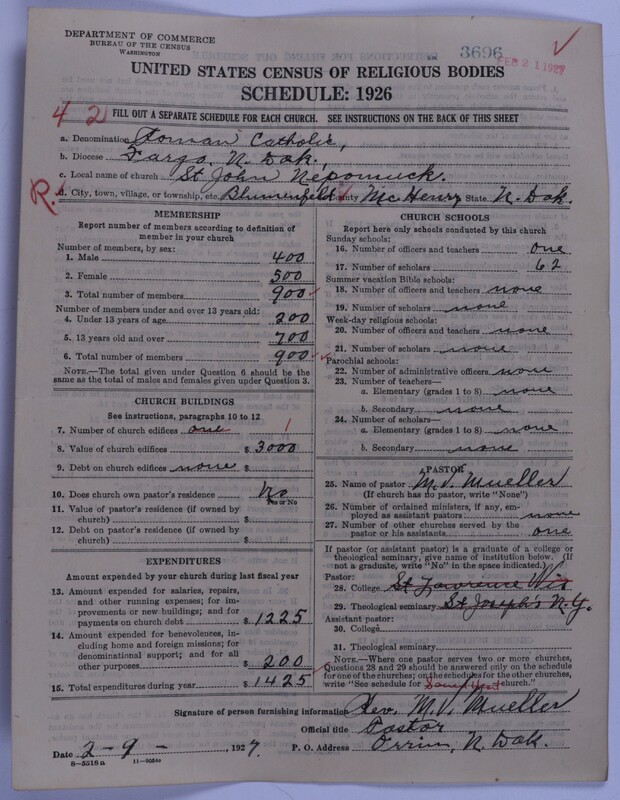 DEPARTMENT OF COMMERCE
BUREAU OF THE CENSUS
WASHINGTON
3696
FEB 21 1927
UNITED STATES CENSUS OF RELIGIOUS BODIES
SCHEDULE: 1926
4 2 FILL OUT A SEPARATE SCHEDULE FOR EACH CHURCH. SEE INSTRUCTIONS ON THE BACK OF THIS SHEET
a. Denomination Roman Catholic,
b. Diocese Fargo, N. Dak.,
c. Local name of church St John Nepomuck.
R. d. City, town, village, or township, etc. Blumenfeld County Mc Henry State N. Dak.
MEMBERSHIP
Report number of members according to definition of
member in your church
Number of members, by sex:
1. Male 400
2. Female 500
3. Total number of members 900
Number of members under and over 13 years old:
4. Under 13 years of age 200
5. 13 years old and over 700
6. Total number of members 900
NOTE.—The total given under Question 6 should be
the same as the total of males and females given under Question 3.
CHURCH BUILDINGS
See instructions, paragraphs 10 to 12
7. Number of church edifices one 1
8. Value of church edifices $ 3000
9. Debt on church edifices none $
10. Does church own pastor's residence No
Yes or No
11. Value of pastor's residence (if owned by
church) $
12. Debt on pastor's residence (if owned by
church) $
EXPENDITURES
Amount expended by your church during last fiscal year
13. Amount expended for salaries, repairs,
and other running expenses; for im-
provements or new buildings; and for
payments on church debt $ 1225
14. Amount expended for benevolences, in-
cluding home and foreign missions; for
denominational support; and for all
other purposes $ 200
15. Total expenditures during year $ 1425
CHURCH SCHOOLS
Report here only schools conducted by this church
Sunday schools:
16. Number of officers and teachers one
17. Number of scholars 62
Summer vacation Bible schools:
18. Number of officers and teachers none
19. Number of scholars none
Week-day religious schools:
20. Number of officers and teachers none
21. Number of scholars none
Parochial schools:
22. Number of administrative officers none
23. Number of teachers—
a. Elementary (grades 1 to 8) none
b. Secondary none
24. Number of scholars—
a. Elementary (grades 1 to 8) none
b. Secondary none
PASTOR
25. Name of pastor M. V. Mueller
(If church has no pastor, write "None")
26. Number of ordained ministers, if any, em-
ployed as assistant pastors none
27. Number of other churches served by the
pastor or his assistants one
If pastor (or assistant pastor) is a graduate of a college or
theological seminary, give name of institution below. (If
not a graduate, write "No" in the space indicated.)
Pastor:
28. College St Lawrence Wis
29. Theological seminary St Joseph's N.Y.
Assistant pastor:
30. College
31. Theological seminary
NOTE.—Where one pastor serves two or more churches,
Questions 28 and 29 should be answered only on the schedule
for one of the churches; on the schedules for the other churches,
write "See schedule for church."
Signature of person furnishing information Rev. M. V. Mueller
Official title Pastor
Date 2-9-, 1927. P. O. Address Orrin, N. Dak.
8-5518 a